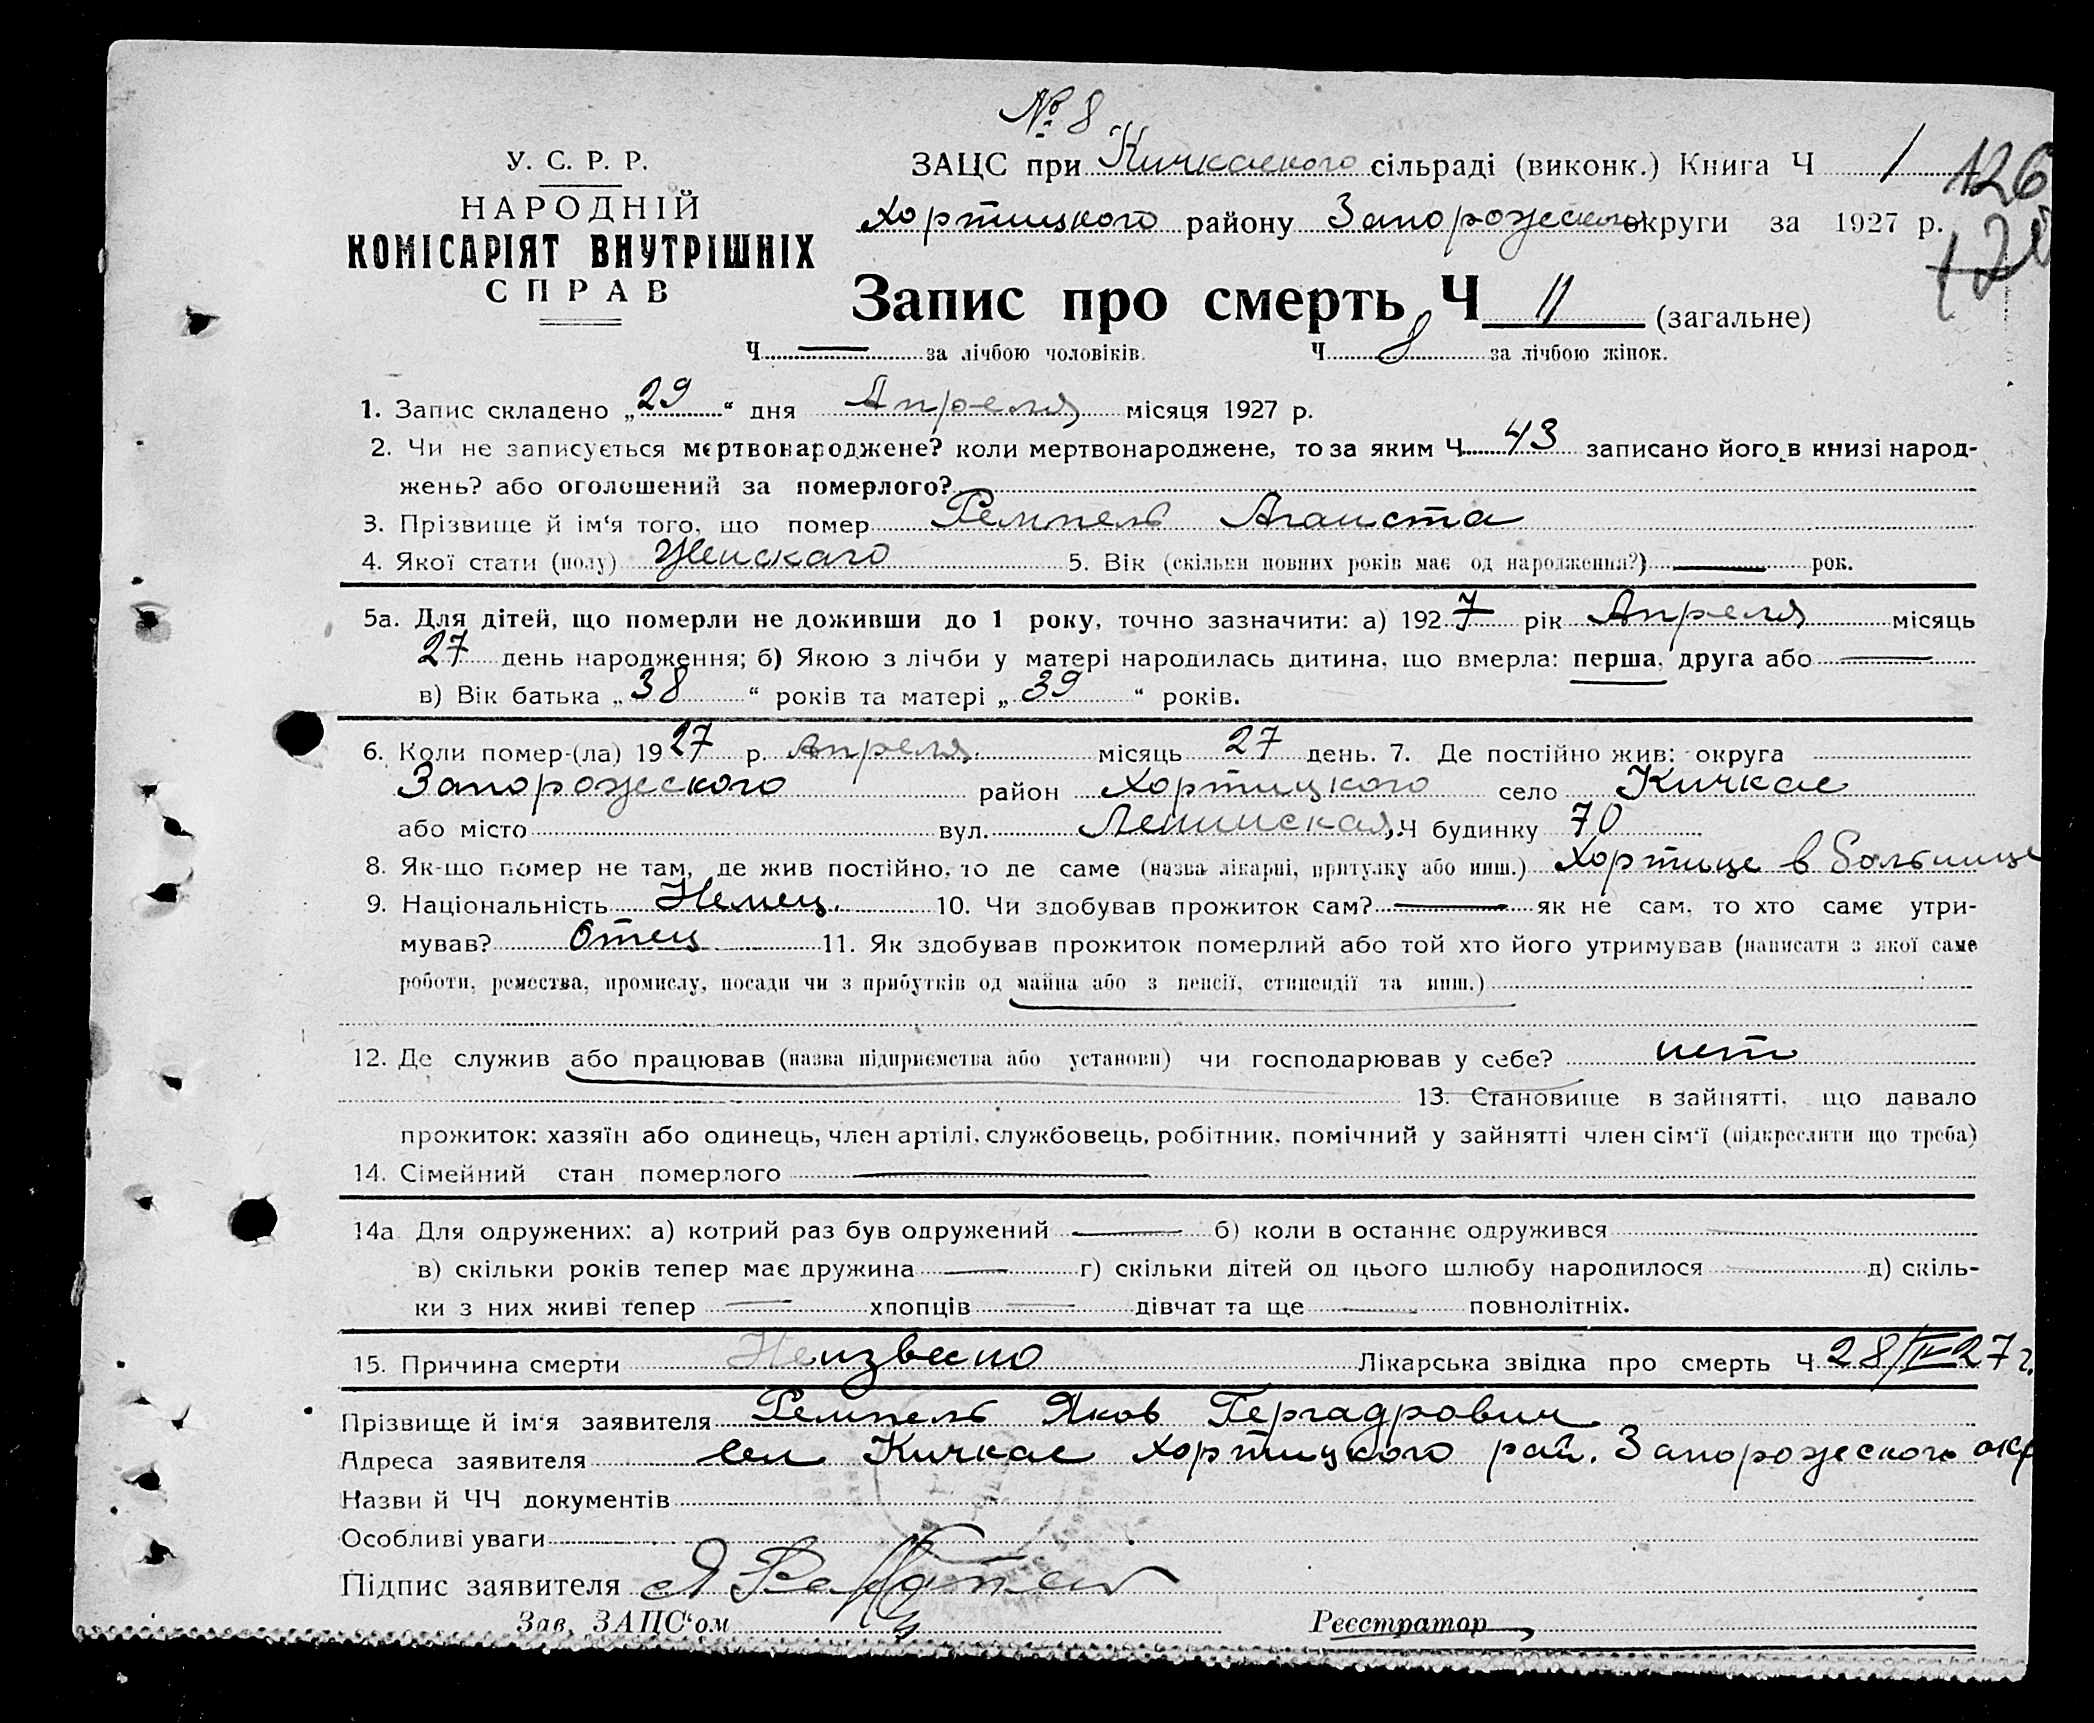 № 8
У. С. Р. Р.
НАРОДНІЙ
КОМІСАРІЯТ ВНУТРІШНІХ
СПРАВ
ЗАЦС при Кичкаского сільраді (виконк.) Книга Ч 1
126
Хортицкого району Запорожского округи за 1927 р.
Запис про смерть Ч 11 (загальне)
Ч — за лічбою чоловіків. Ч 8 за лічбою жінок.
1. Запис складено „29“ дня Апреля місяця 1927 р.
2. Чи не записується мертвонароджене? коли мертвонароджене, то за яким Ч 43 записано його в книзі народ-
жень? або оголошений за померлого?
3. Прізвище й ім‘я того, що помер Ремпель Аганста
4. Якої стати (полу) Женскаго 5. Вік (скільки повних років має од народження?) — рок.
5а. Для дітей, що померли не доживши до 1 року, точно зазначити: а) 1927 рік Апреля місяць
27 день народження; б) Якою з лічби у матері народилась дитина, що вмерла: перша, друга або —
в) Вік батька „38“ років та матері „39“ років.
6. Коли помер-(ла) 1927 р. Апреля місяць 27 день. 7. Де постійно жив: округа
Запорожского район Хортицкого село Кичкас
або місто вул. Ленинская, Ч будинку 70
8. Як-що помер не там, де жив постійно, то де саме (назва лікарні, притулку або инш.) Хортице в больнице
9. Національність Немец. 10. Чи здобував прожиток сам? — як не сам, то хто саме утри-
мував? Отец 11. Як здобував прожиток померлий або той хто його утримував (написати з якої саме
роботи, ремества, промислу, посади чи з прибутків од майна або з пенсії, стипендії та инш.)
12. Де служив або працював (назва підприємства або установи) чи господарював у себе? нет
13. Становище в зайнятті, що давало
прожиток: хазяїн або одинець, член артілі, службовець, робітник, помічний у зайнятті член сім‘ї (підкреслити що треба)
14. Сімейний стан померлого —
14а Для одружених: а) котрий раз був одружений — б) коли в останнє одружився —
в) скільки років тепер має дружина — г) скільки дітей од цього шлюбу народилося — д) скіль-
ки з них живі тепер — хлопців — дівчат та ще — повнолітніх.
15. Причина смерти Неизвесно Лікарська звідка про смерть Ч 28/IV-27 г.
Прізвище й ім‘я заявителя Ремпель Яков Гергадрович
Адреса заявителя сел Кичкас Хортицкого рай. Запорожеского окр
Назви й ЧЧ документів
Особливі уваги
Підпис заявителя
Зав. ЗАЦС‘ом Реєстратор